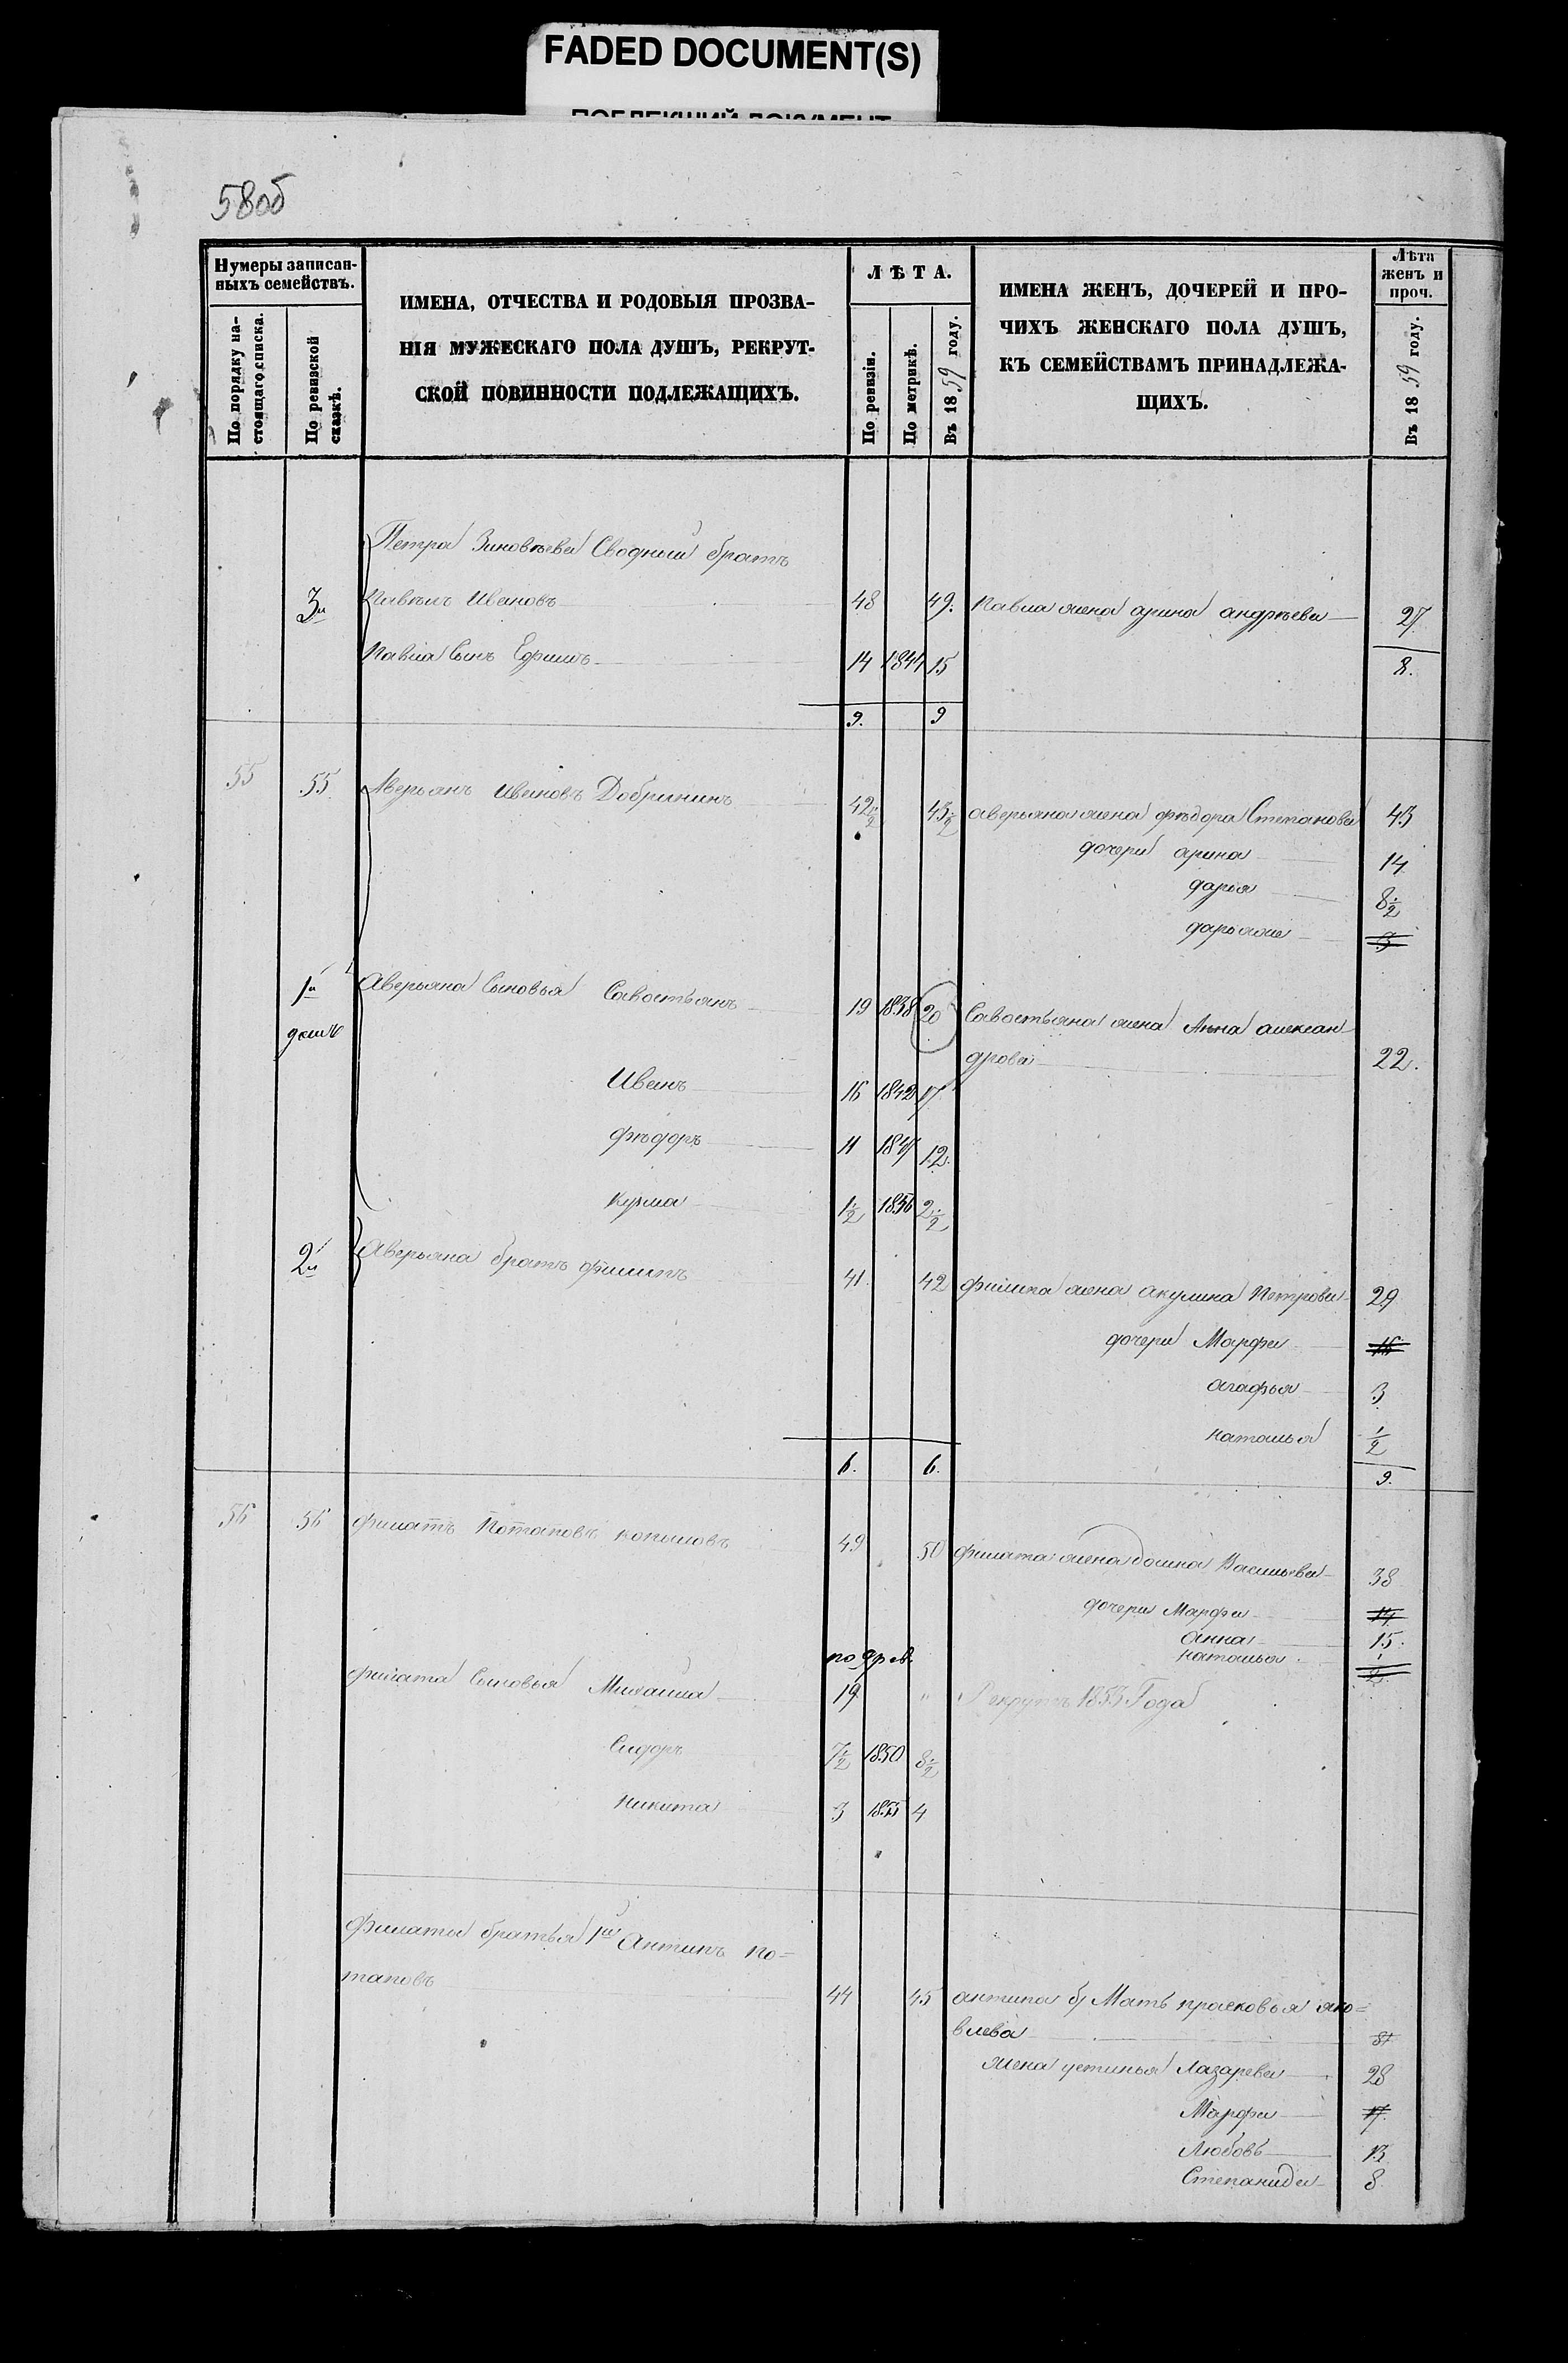 FADED DOCUMENT(S)
ПОБЛЕКШИЙ ДОКУМЕНТ
58об
Нумеры записан-
ныхъ семействъ.
По порядку на-
стоящаго списка.
По ревизской
сказкѣ.
ИМЕНА, ОТЧЕСТВА И РОДОВЫЯ ПРОЗВА-
НІЯ МУЖЕСКАГО ПОЛА ДУШЪ, РЕКРУТ-
СКОЙ ПОВИННОСТИ ПОДЛЕЖАЩИХЪ.
ЛѢТА.
По ревизіи.
По метрикѣ.
Въ 1859 году.
ИМЕНА ЖЕНЪ, ДОЧЕРЕЙ И ПРО-
ЧИХЪ ЖЕНСКАГО ПОЛА ДУШЪ,
КЪ СЕМЕЙСТВАМЪ ПРИНАДЛЕЖА-
ЩИХЪ.
Лѣта
женъ и
проч.
Въ 1859 году.
Петра Зиновѣева Сводный братъ
3й Павѣлъ Ивановъ 48 49. Павла жена арина андрѣева 27
Павла Сынъ Ефимъ 14 1844 15 8.
9. 9
55 55 Аверьянъ Ивановъ Добрининъ 42½ 43½ аверьяна жена фѣдора Степанова 43
дочери арина 14
дарья 8½
3
1й Аверьяна Сыновья Савостьянъ 19 1838 20 Савостьяна жена Анна алексан-
дрова 22.
Иванъ 16 1842 17
фѣдоръ 11 1847 12.
Кузма 1½ 1856 2½
2й Аверьяна братъ филипъ 41. 42 филипа жена акулина Петрова 29
дочери Марфа
агафья 3
наталья ½
6. 6. 9.
56 56 филатъ Потаповъ копыловъ 49 50 филата жена домна Васильева 38
дочери Марфа 14
анна 15.
наталья
филата Сыновья Михайла 19 " Рекрутъ 1853 Года
Сидоръ 7½ 1850 8½
никита 3 1855 4
Филата братья 1й Антипъ По=
таповъ 44 45 антипа Мать прасковья яко=
влева 81
жена устинья Лазарева 28
Марфа 17.
Любовь 13
Степанида 8